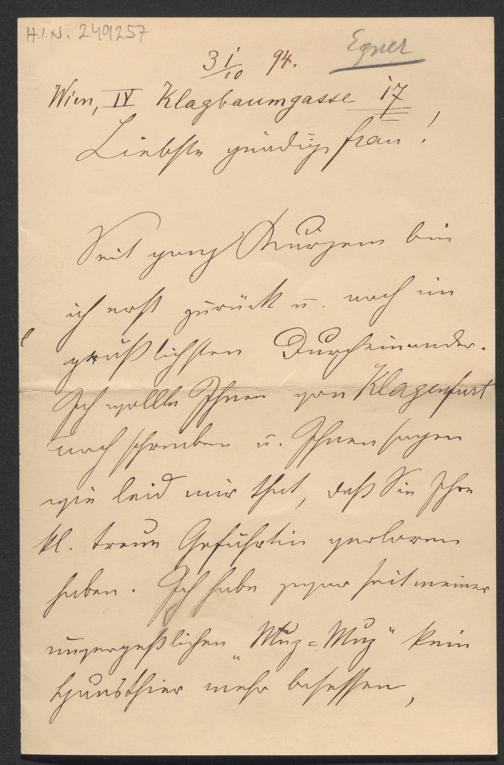 H.I.N. 249257
Egner
31/10 94.
Wien, IV Klagbaumgasse 17
Liebste gnädige Frau!
Seit ganz Kurzem bin
ich erst zurück u. noch im
gräßlichsten Durcheinander.
Ich wollte Ihnen von Klagenfurt
noch schreiben u. Ihnen sagen
wie leid mir that, daß Sie Ihre
kl. treue Gefährtin verloren
haben. Ich habe zwar seit meiner
unvergeßlichen "Muz=Muz" kein
Hausthier mehr besessen,